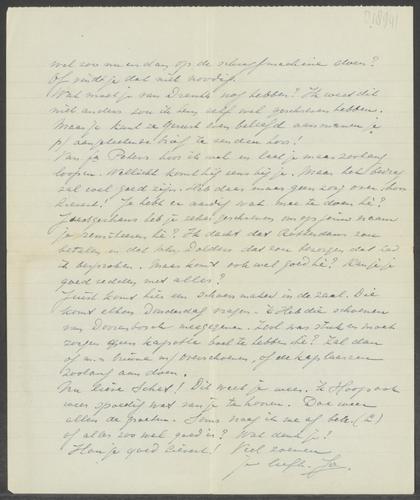 wel zou nu en dan op de schrijfmachine doen?
Of vindt je dat niet noodig.
Wat moet je van Drenth nog hebben? Ik weet dit
niet anders zou ik hem zelf wel geschreven hebben.
Maar je kunt ze gerust even beleefd aanmanen je
te zenden hoor!
Van ja Peters hoor ik wel en laat je maar zoolang
loopen. Wellicht komt hij eens bij je. Maar het bedrag
zal wel goed zijn. Heb daar maar geen zorg over hoor
lieverd! Je hebt er aardig wat mee te doen hè?
heb je zeker geschreven om op jouw naam
hè? Ik dacht dat Rotterdam zou
betalen en dat Dolders dat zou bezorgen dat had
ik begrepen. Maar komt ook wel goed hè? Kan je je
goed redden met alles?
Juist komt hier een schoenmaker in de zaal. Die
komt elken Donderdag vragen. Ik heb die schoenen
van Doorenbosch meegegeven. was stuk en moet
zorgen geen kapotte boel te hebben hè? Zal dan
overschoenen, of de kaplaarzen
zoolang aan doen.
Nu lieve Schat! Dit weet je weer. Ik hoop ook
weer spoedig wat van je te hooren. Doe weer
allen de groeten. Soms vraag ik me af
of alles zoo wel goed is? Wat denk je?
Hou je goed lieverd! Veel zoenen
je liefh. Ja.